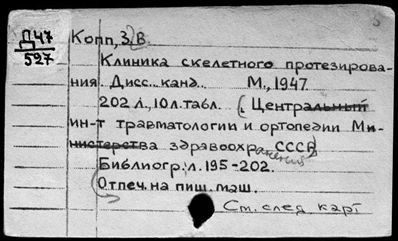 Д47
597
Копп, З.В.
Клиника скелетного протезирова-
ния. Дисс. канд. М., 1947.
202 л., 10 л. табл. (Центральный
ин-т травматологии и ортопедии Ми-
нистерства здравоохранения СССР)
Библиогр.: л. 195-202.
Отпеч. на пиш. маш.
См. след. карт